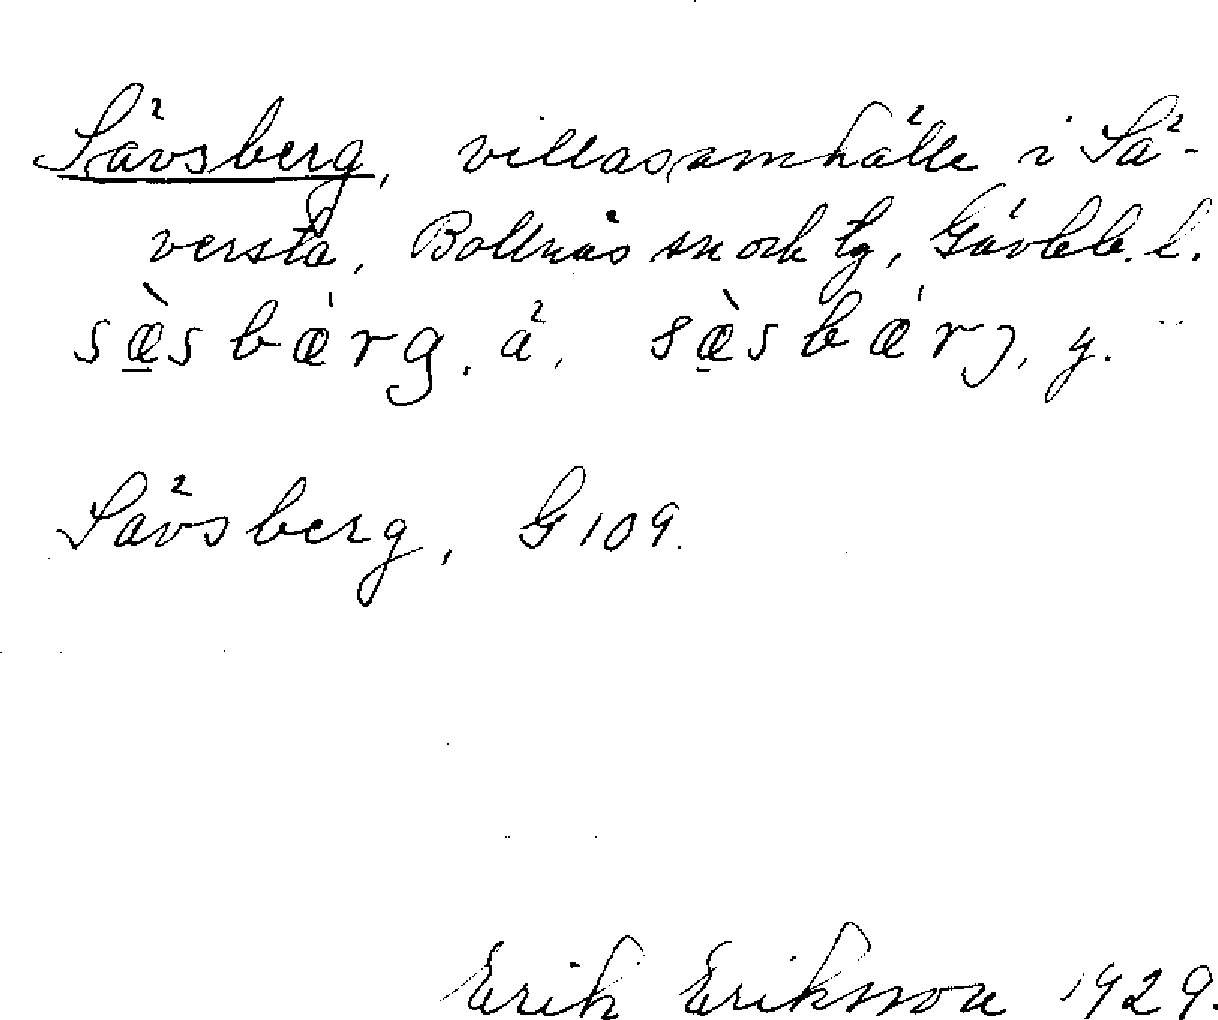 Sävsberg, villasamhälle i Sä-
versta, Bollnäs sn och tg, Gävleb. l.
sæ̠̀sbǽrg, ä, sæ̠̀sbǽrj, y.
Sävsberg, G 109.
Erik Eriksson 1929.